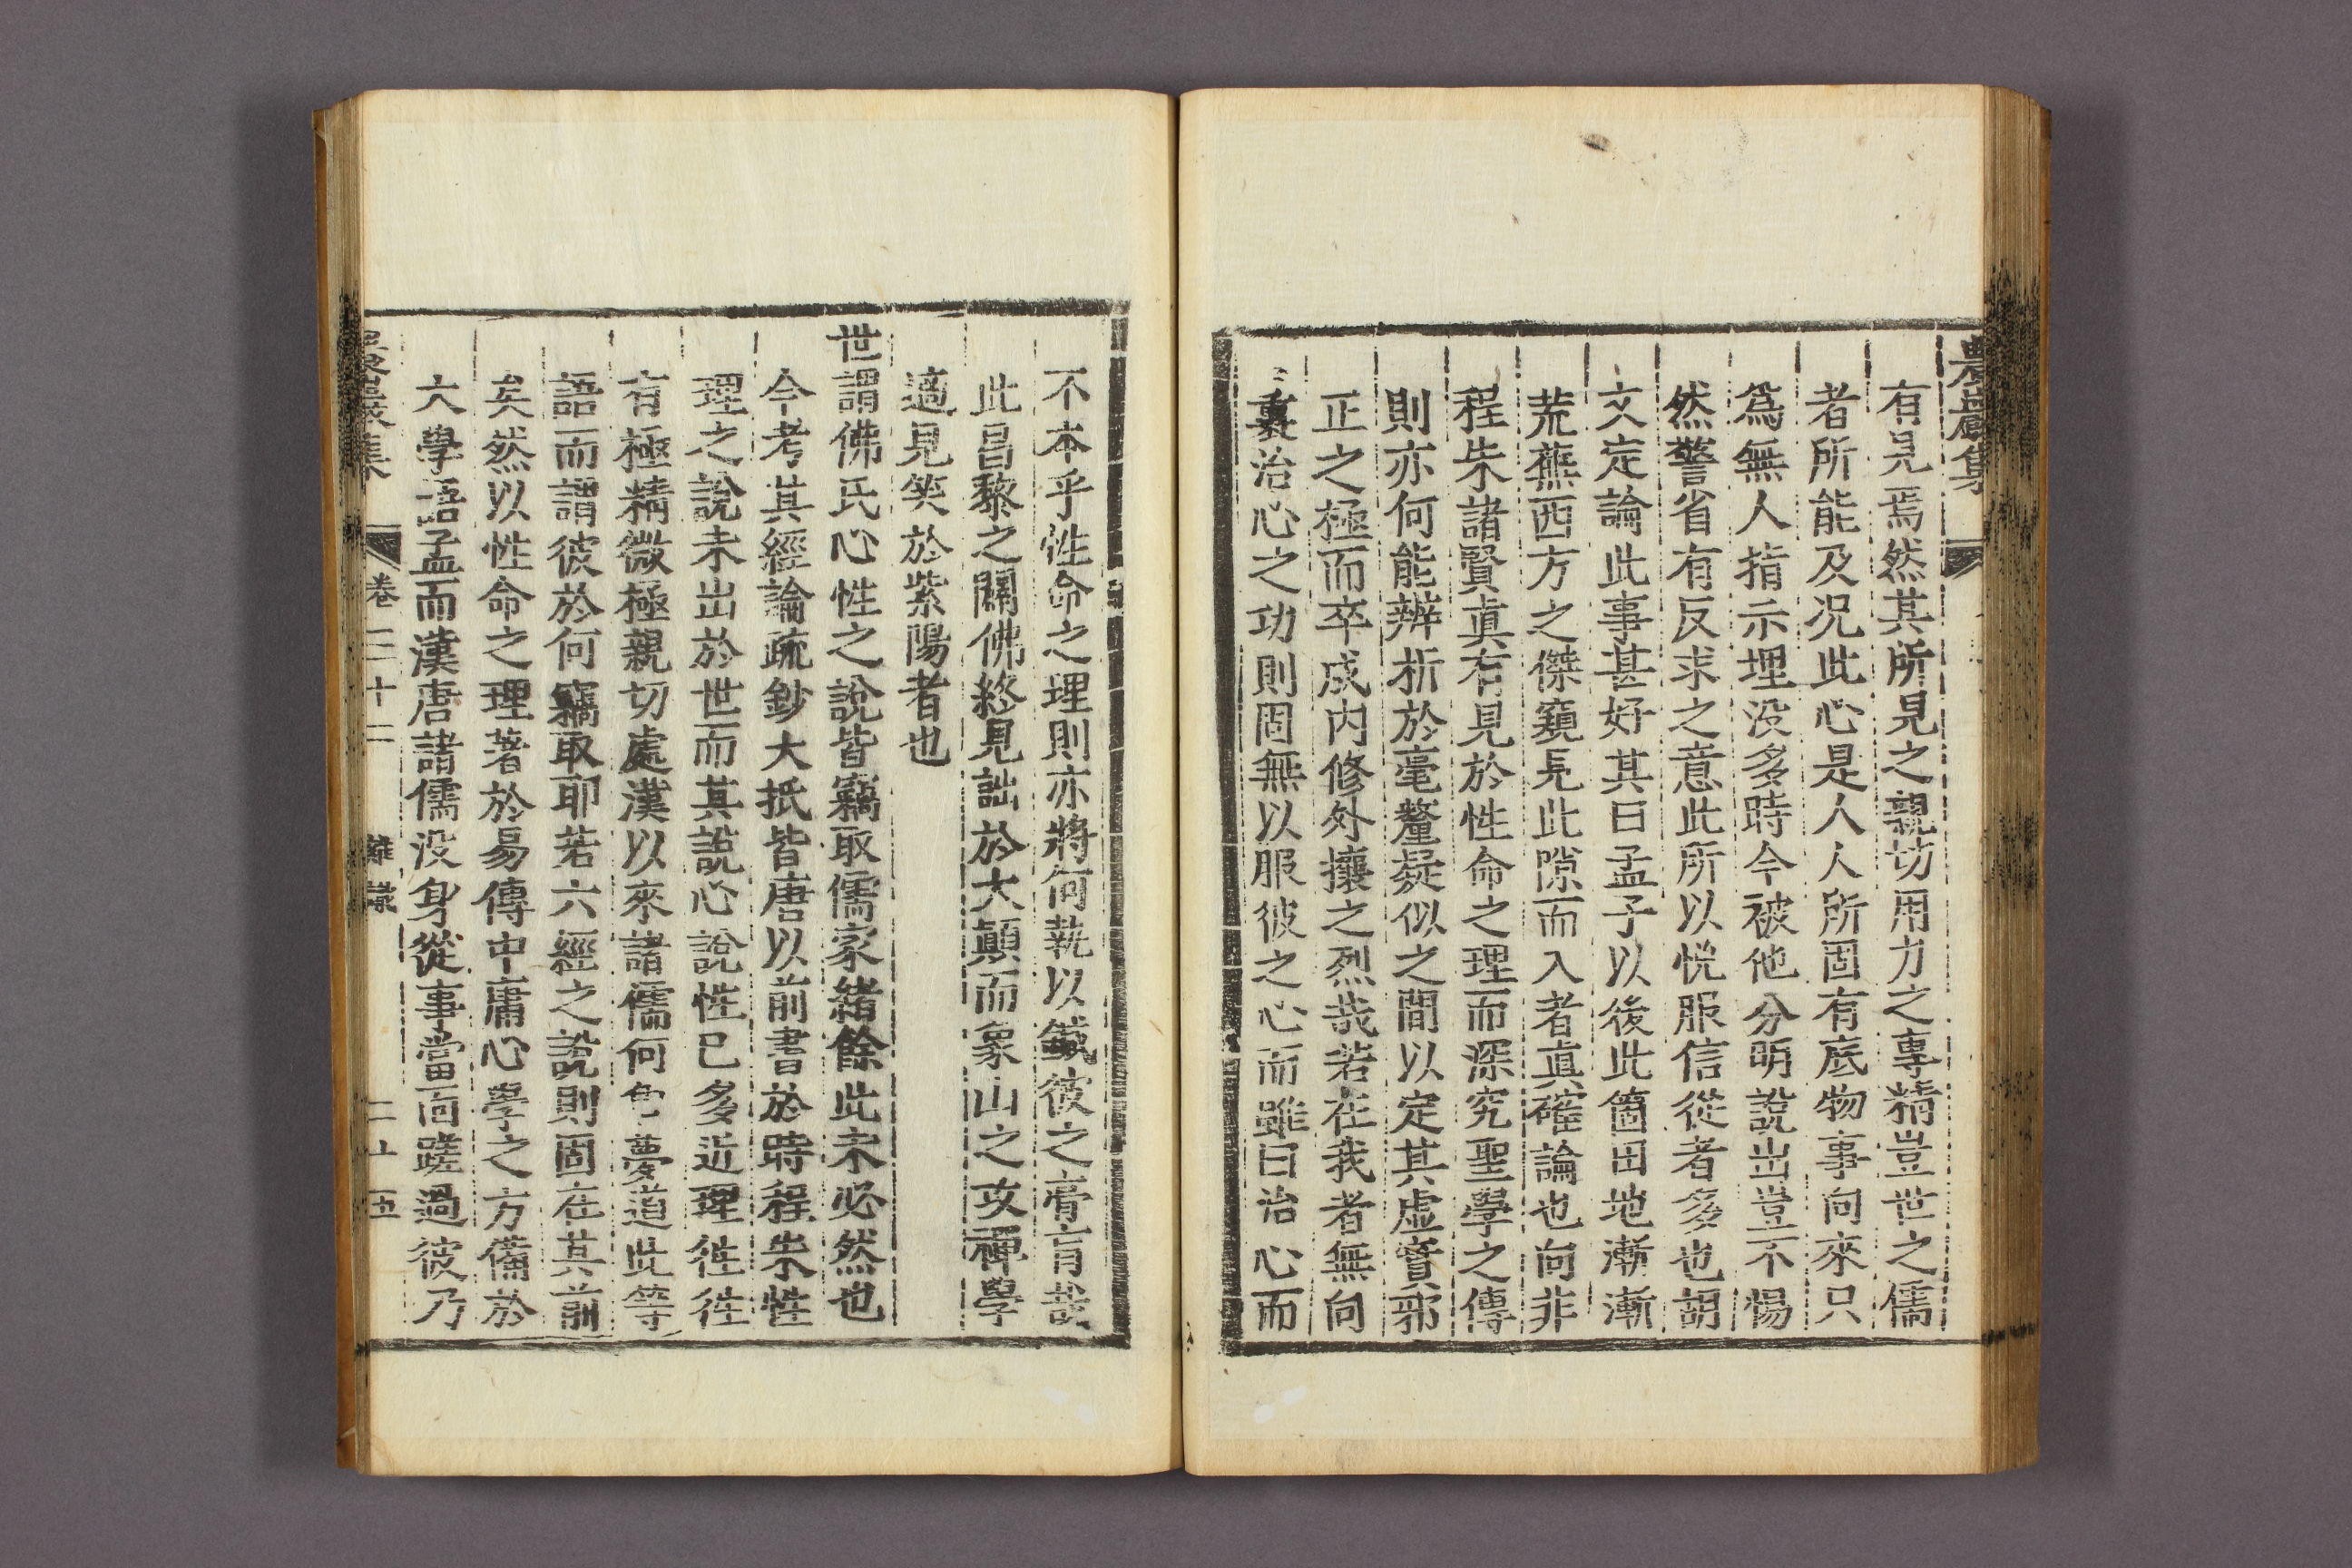 農巖集
有見焉然其所見之親切用力之專精豈世之儒
者所能及况此心是人人所固有底物事向來只
爲無人指示埋没多時今被他分明說出豈不惕
然警省有反求之意此所以悅服信從者多也胡
文定論此事甚好其曰孟子以後此箇田地漸漸
荒蕪西方之傑窺見此隙而入者眞確論也向非
程朱諸賢眞有見於性命之理而深究聖學之傳
則亦何能辨析於毫釐疑似之間以定其虛實邪
正之極而卒成内修外攘之烈哉若在我者無向
裏治心之功則固無以服彼之心而雖曰治心而
不本乎性命之理則亦將何執以鍼彼之膏肓哉
此昌黎之闢佛終見詘於大顚而象山之攻禪學
適見笑於紫陽者也
世謂佛氏心性之說皆竊取儒家緖餘此未必然也
今考其經論疏鈔大抵皆唐以前書於時程朱性
理之說未出於世而其說心說性已多近理徃徃
有極精微極親切處漢以來諸儒何曾夢道此等
語而謂彼於何竊取耶若六經之說則固在其前
矣然以性命之理著於易傳中庸心學之方備於
六學語孟而漢唐諸儒没身從事當面蹉過彼乃
農巖集 卷三十二 雜識 二十五